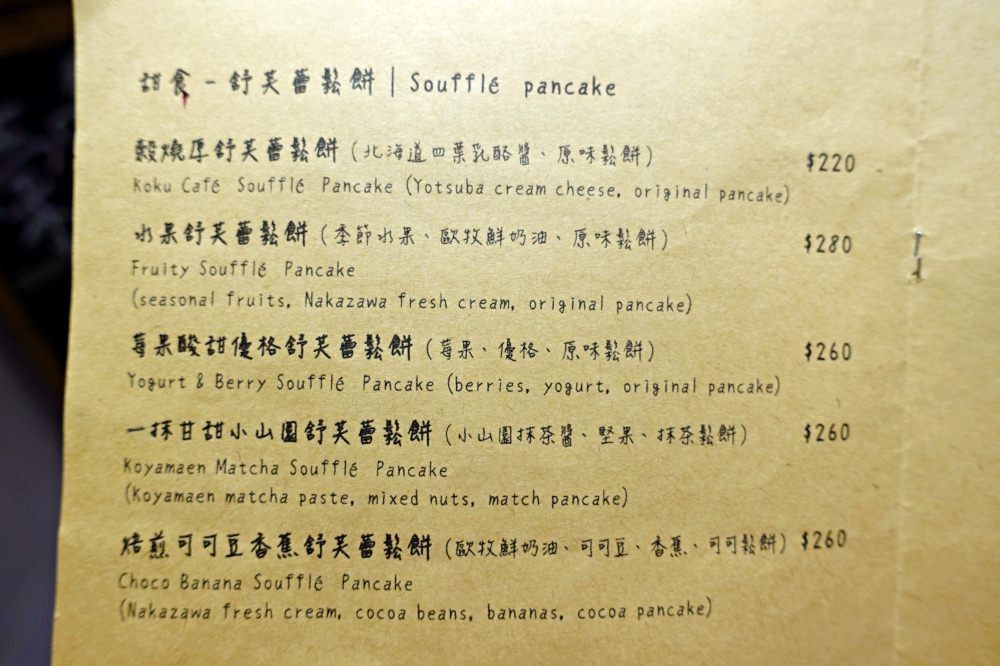 甜食 - 舒芙蕾鬆餅 | Soufflé pancake
穀燒厚舒芙蕾鬆餅 (北海道四葉乳酪醬、原味鬆餅) $220
Koku Café Soufflé Pancake (Yotsuba cream cheese, original pancake)
水果舒芙蕾鬆餅 (季節水果、歐牧鮮奶油、原味鬆餅) $280
Fruity Soufflé Pancake
(seasonal fruits, Nakazawa fresh cream, original pancake)
莓果酸甜優格舒芙蕾鬆餅 (莓果、優格、原味鬆餅) $260
Yogurt & Berry Soufflé Pancake (berries, yogurt, original pancake)
一抹甘甜小山園舒芙蕾鬆餅 (小山園抹茶醬、堅果、抹茶鬆餅) $260
Koyamaen Matcha Soufflé Pancake
(Koyamaen matcha paste, mixed nuts, match pancake)
焙煎可可豆香蕉舒芙蕾鬆餅 (歐牧鮮奶油、可可豆、香蕉、可可鬆餅) $260
Choco Banana Soufflé Pancake
(Nakazawa fresh cream, cocoa beans, bananas, cocoa pancake)